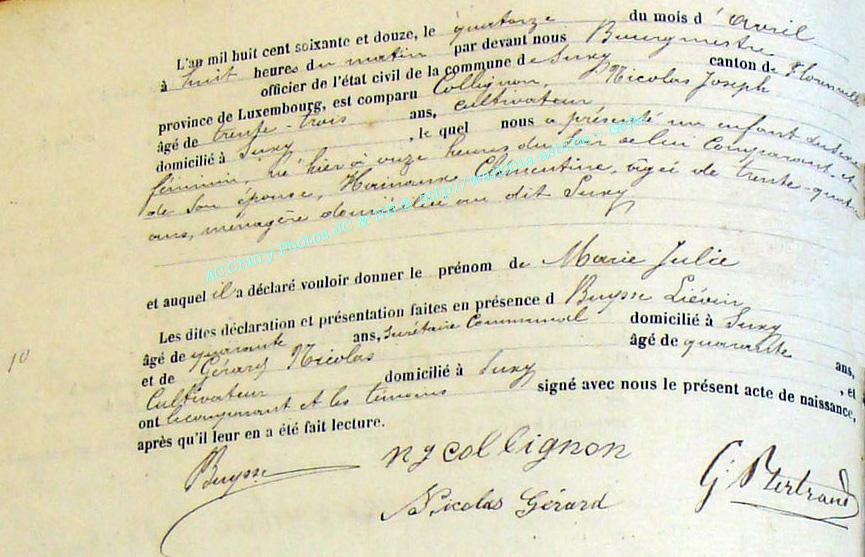 L'an mil huit cent soixante et douze, le quatorze du mois d'Avril
à huit heures du matin par devant nous Bourgmestre
officier de l'état civil de la commune de Suxy canton de Florenville
province de Luxembourg, est comparu Collignon, Nicolas Joseph
âgé de trente-trois ans, cultivateur
domicilié à Suxy, le quel nous a présenté un enfant du sexe
féminin né hier à onze heures du soir de lui comparant et
de son épouse, Clémentine, agée de trente-quatre
ans, ménagère domiciliée au dit Suxy
et auquel il a déclaré vouloir donner le prénom de Marie Julie
Les dites déclaration et présentation faites en présence d Buysse Liévin
âgé de quarante ans, Secrétaire Communal domicilié à Suxy
et de Gérard Nicolas âgé de quarante ans,
Cultivateur domicilié à Suxy, et
ont le comparant et les témoins signé avec nous le présent acte de naissance,
après qu'il leur en a été fait lecture.
10
Buysse
n j collignon
G. Bertrand
Nicolas Gérard
AC Chiny - Photos JC &